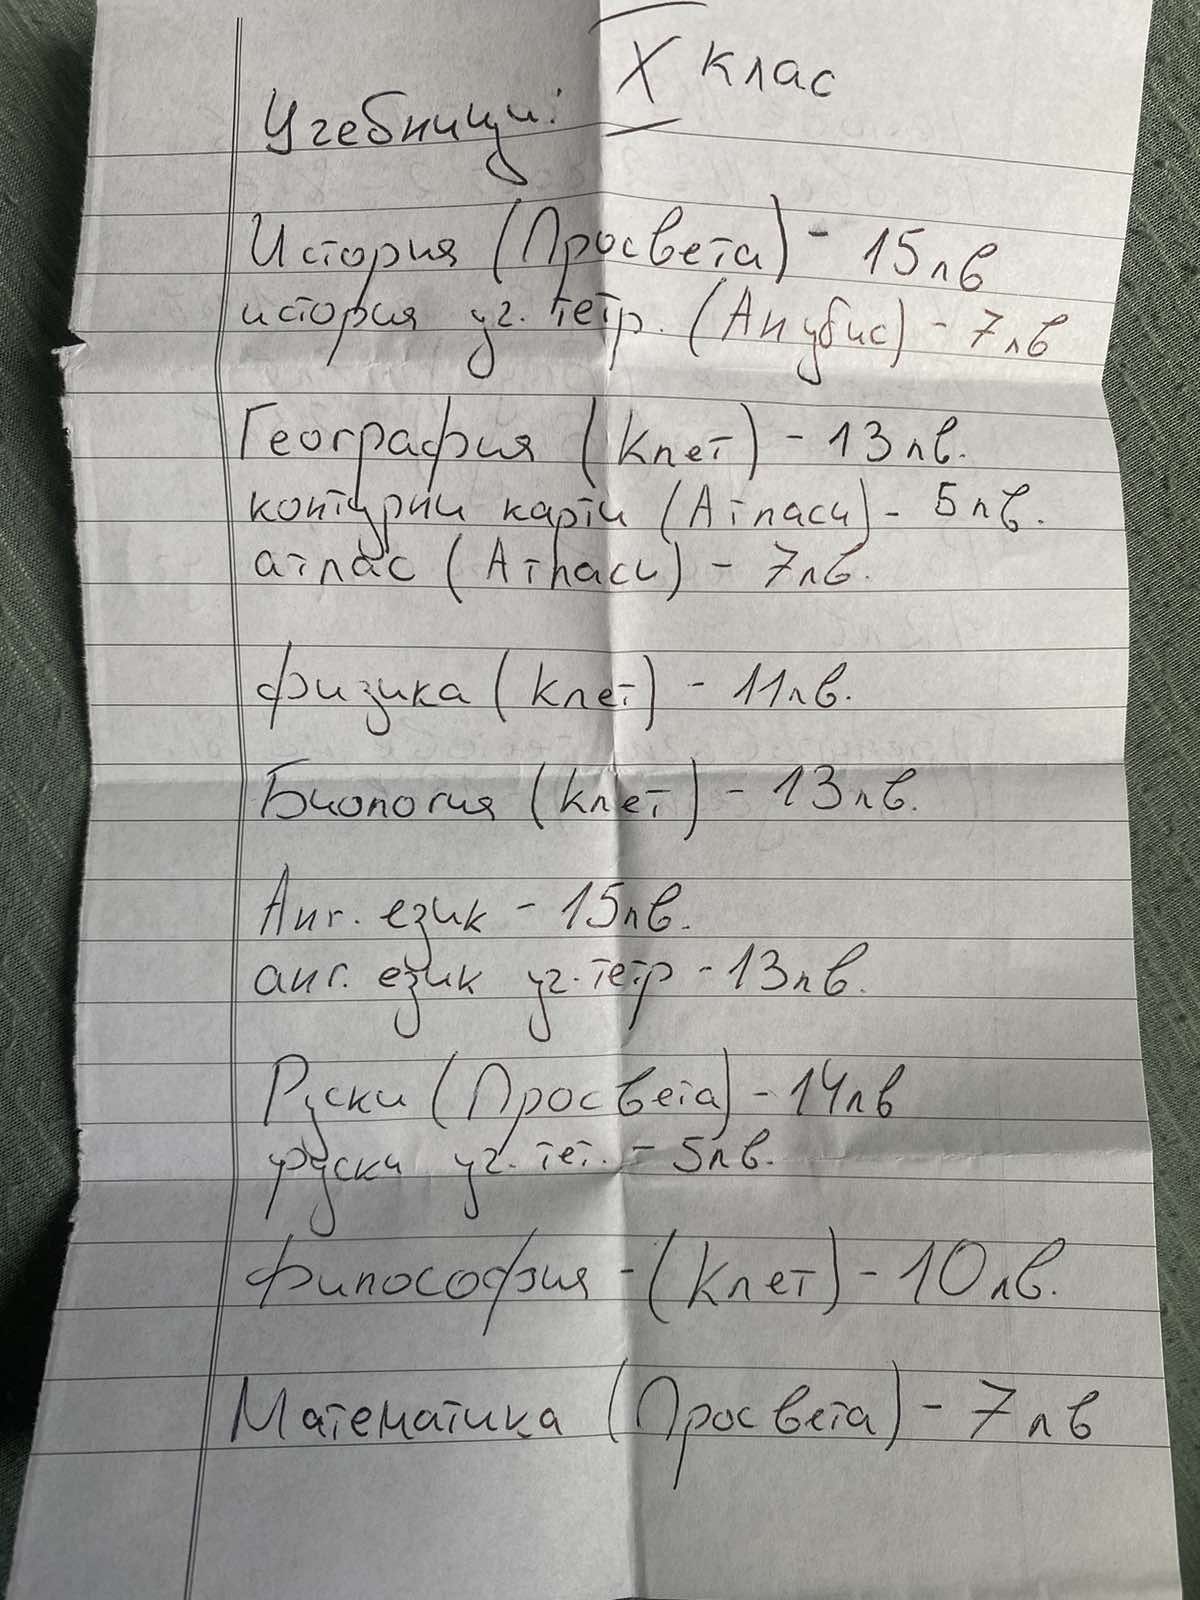 X клас
Учебници:
История (Просвета) - 15лв
история уч. тетр. (Анубис) - 7лв
География (Клет) - 13лв.
контурни карти (Атласи) - 5лв.
атлас (Атласи) - 7лв.
физика (Клет) - 11лв.
Биология (Клет) - 13лв.
Анг. език - 15лв.
анг. език уч. тетр - 13лв.
Руски (Просвета) - 14лв
руски уч. тет. - 5лв.
философия - (Клет) - 10лв.
Математика (Просвета) - 7лв